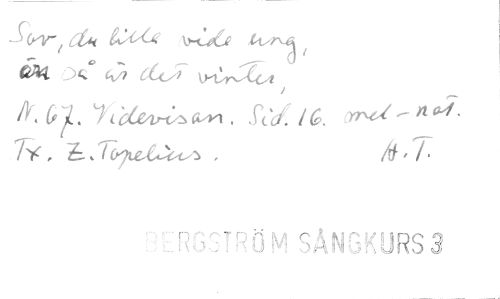 Sov, du lilla vide ung,
än så är det vinter,
N. 67. Videvisan. Sid. 16. mel-not.
Tx. Z. Topelius. H. T.
BERGSTRÖM SÅNGKURS 3